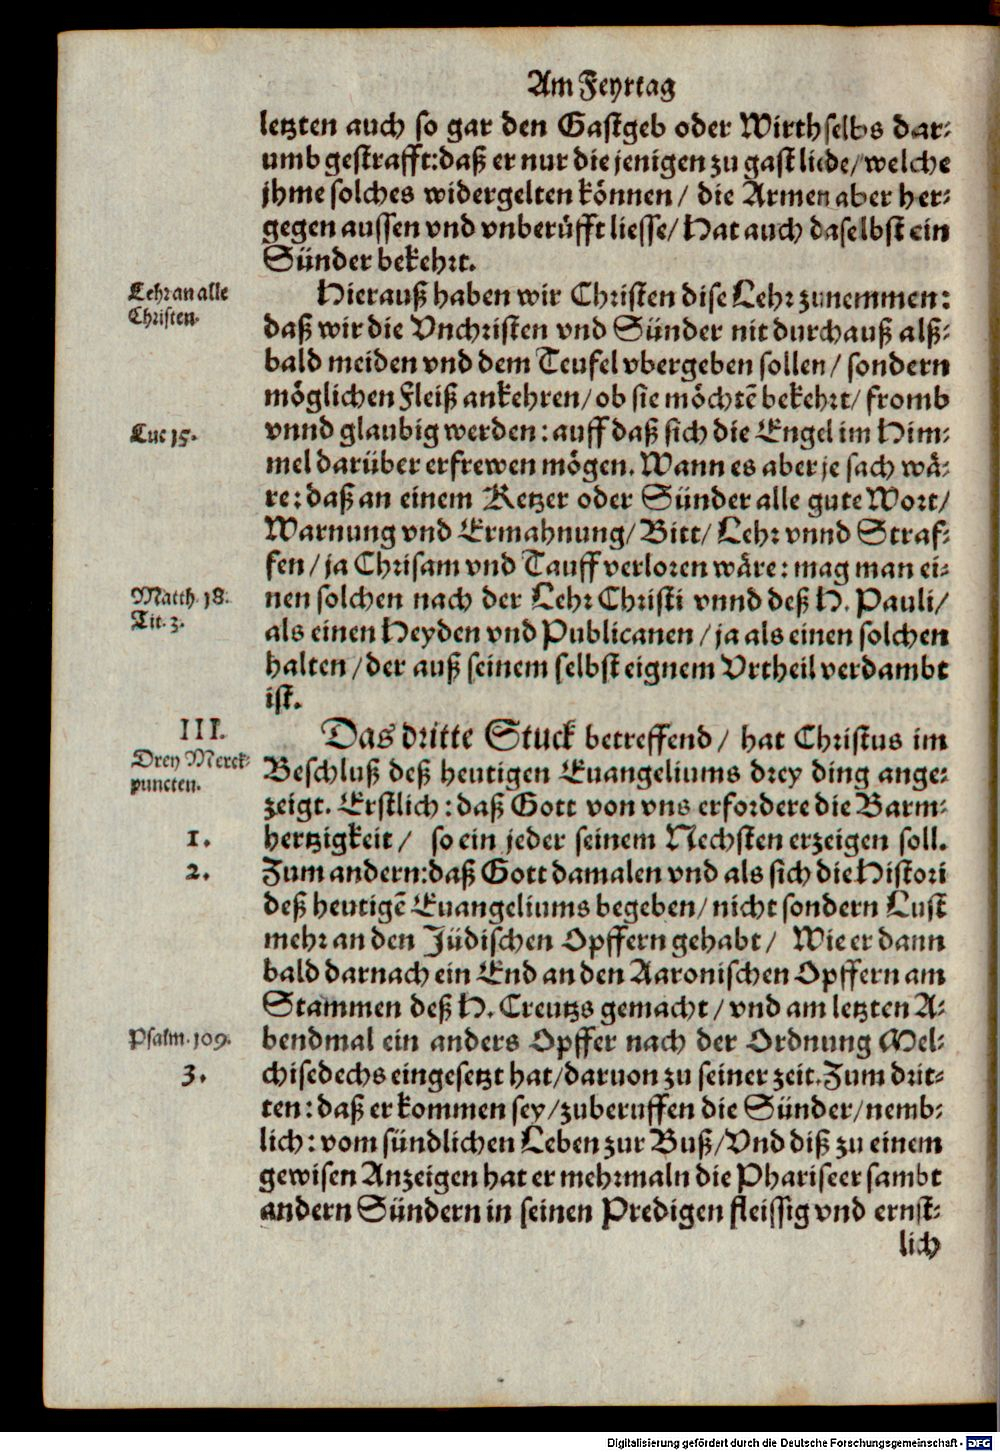 Am Feyrtag
letzten auch so gar den Gastgeb oder Wirth selbs dar-
umb gestrafft: daß er nur die jenigen zu gast liede/ welche
jhme solches widergelten können/ die Armen aber her-
gegen aussen vnd vnberüfft liesse/ Hat auch daselbst ein
Sünder bekehrt.
Lehr an alle
Christen.
Hierauß haben wir Christen dise Lehr zunemmen:
daß wir die Vnchristen vnd Sünder nit durchauß alß-
bald meiden vnd dem Teufel vbergeben sollen/ sondern
möglichen Fleiß ankehren/ ob sie möchtẽ bekehrt/ fromb
Luc 15.
vnnd glaubig werden: auff daß sich die Engel im Him-
mel darüber erfrewen mögen. Wann es aber je sach wä-
re: daß an einem Ketzer oder Sünder alle gute Wort/
Warnung vnd Ermahnung/ Bitt/ Lehr vnnd Straf-
fen/ ja Chrisam vnd Tauff verloren wäre: mag man ei-
Matth. 18.
Tit. 3.
nen solchen nach der Lehr Christi vnnd deß H. Pauli/
als einen Heyden vnd Publicanen/ ja als einen solchen
halten/ der auß seinem selbst eignem Vrtheil verdambt
ist.
III.
Drey Merck-
puncten.
Das dritte Stuck betreffend/ hat Christus im
Beschluß deß heutigen Euangeliums drey ding ange-
zeigt. Erstlich: daß Gott von vns erfordere die Barm-
1.
hertzigkeit/ so ein jeder seinem Nechsten erzeigen soll.
2.
Zum andern: daß Gott damalen vnd als sich die Histori
deß heutigẽ Euangeliums begeben/ nicht sondern Lust
mehr an den Jüdischen Opffern gehabt/ Wie er dann
bald darnach ein End an den Aaronischen Opffern am
Stammen deß H. Creutzs gemacht/ vnd am letzten A-
Psalm. 109.
bendmal ein anders Opffer nach der Ordnung Mel-
3.
chisedechs eingesetzt hat/ daruon zu seiner zeit. Zum drit-
ten: daß er kommen sey/ zuberuffen die Sünder/ nemb-
lich: vom sündlichen Leben zur Buß/ Vnd diß zu einem
gewisen Anzeigen hat er mehrmaln die Phariseer sambt
andern Sündern in seinen Predigen fleissig vnd ernst-
lich
Digitalisierung gefördert durch die Deutsche Forschungsgemeinschaft - DFG